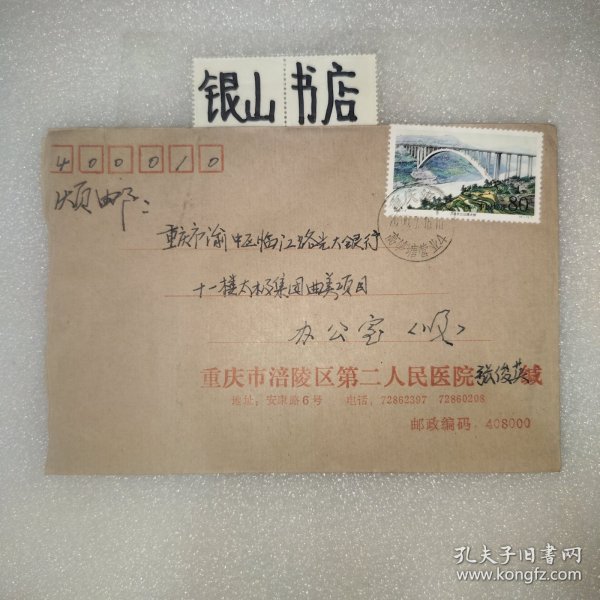 银山书店
400010
80
重庆市渝中区临江路光大银行
十一楼太极集团曲美项目
办公室（收）
重庆市涪陵区第二人民医院 张俊英 缄
地址：安康路6号 电话：72862397 72860298
邮政编码：408000
孔夫子旧书网
www.kongfz.com